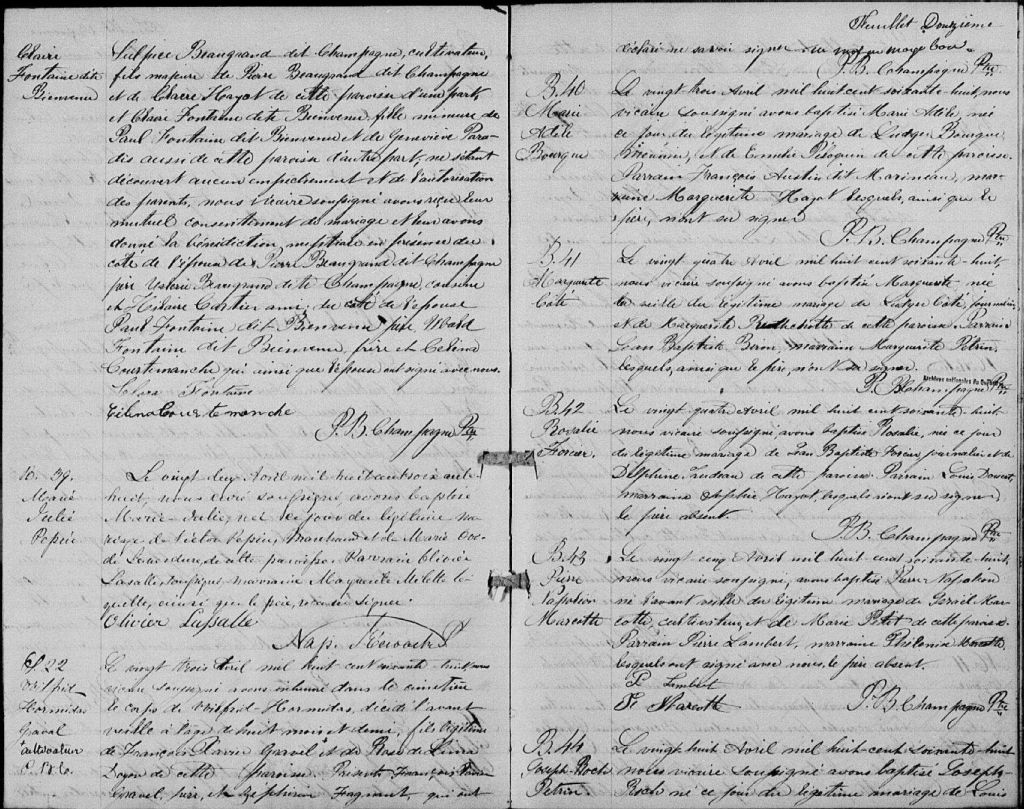 Claire
Fontaine dite
Bienvenu
Sulpice Beaugrand dit Champagne, cultivateur,
fils majeur de Pierre Beaugrand dit Champagne
et de Claire Hayot de cette paroisse d'une part,
et Claire Fontaine dite Bienvenu, fille mineure de
Paul Fontaine dit Bienvenu et de Geneviève Para-
dis aussi de cette paroisse d'autre part, ne s'étant
découvert aucun empêchement et de l'autorisation
des parents, nous Vicaire soussigné avons reçu leur
mutuel consentement de mariage et leur avons
donné la bénédiction nuptiale en présence du
côté de l'époux de Pierre Beaugrand dit Champagne
père Valérie Beaugrand dite Champagne, cousine
et Hilaire Cartier ami, du côté de l'épouse
Paul Fontaine dit Bienvenu père
Fontaine dit Bienvenu, frère et Celina
Courtemanche qui ainsi que l'épouse ont signé avec nous.
Fontaine
Celina Courtemanche
P. B. Champagne Ptre
B. 39.
Marie
Julie
Le vingt deux Avril mil huit cent soixante
huit, nous curé soussigné avons baptisé
Marie Julie, née ce jour du légitime ma-
riage de Victor Marchand et de Marie
de cette paroisse. Parrain Olivier
Lasalle, soussigné marraine Marguerite la-
quelle, ainsi que le père, signer.
Olivier Lassalle
Nap.
S. 22
Wilfrid
Hormidas
Gravel
cultivateur
Le vingt trois Avril mil huit cent soixante huit nous
vicaire soussigné avons inhumé dans le cimetière
le corps de Wilfrid Hormidas, décédé l'avant
veille à l'age de huit mois et demi, fils légitime
de François Xavier Gravel et de Rose de Lima
Doyon de cette paroisse. Présents François Xavier
Gravel, père, et Zéphirin Fagnant, qui ont
Feuillet Douzième
déclaré ne savoir signer
P. B. Champagne Ptre
B. 40
Marie
Adèle
Bourque
Le vingt trois Avril mil huit cent soixante huit, nous
vicaire soussigné avons baptisé Marie Adèle, née
ce jour du légitime mariage de Bourque
et de Emelie Péloquin de cette paroisse.
Parrain François Austin dit Marineau, mar-
raine Marguerite Hayot lesquels, ainsi que le
père, n'ont su signer
P. B. Champagne Ptre
B. 41
Marguerite
Côté
Le vingt quatre Avril mil huit cent soixante huit,
nous vicaire soussigné avons baptisé Marguerite née
la veille du légitime mariage de Côté, journalier,
et de Marguerite de cette paroisse. Parrain
Jean Baptiste marraine Marguerite Petrin,
lesquels, ainsi que le père, n'ont su signer.
Archives nationales du Québec
P. B. Champagne Ptre
B. 42
Rosalie
Forcier.
Le vingt quatre Avril mil huit cent soixante huit
nous vicaire soussigné avons baptisé Rosalie, née ce jour
du légitime mariage de Jean Baptiste Forcier journalier et de
Delphine de cette paroisse Parrain Louis
marraine Sophie Hayot lesquels n'ont su signer
le père absent.
P. B. Champagne Ptre
B. 43
Pierre
Napoléon
Marcotte
Le vingt cinq Avril mil huit cent soixante huit
nous vicaire soussigné, avons baptisé Pierre Napoléon
né l'avant veille du légitime mariage de Israël Mar-
cotte, cultivateur, et de Marie de cette paroisse.
Parrain Pierre Lambert, marraine Philomène
lesquels ont signé avec nous, le père absent.
P. Lambert
P. Marcotte
P. B. Champagne Ptre
B. 44
Joseph-Roch
Petrin
Le vingt huit Avril mil huit-cent soixante-huit
nous vicaire soussigné avons baptisé Joseph
Roch né ce jour du légitime mariage de Louis